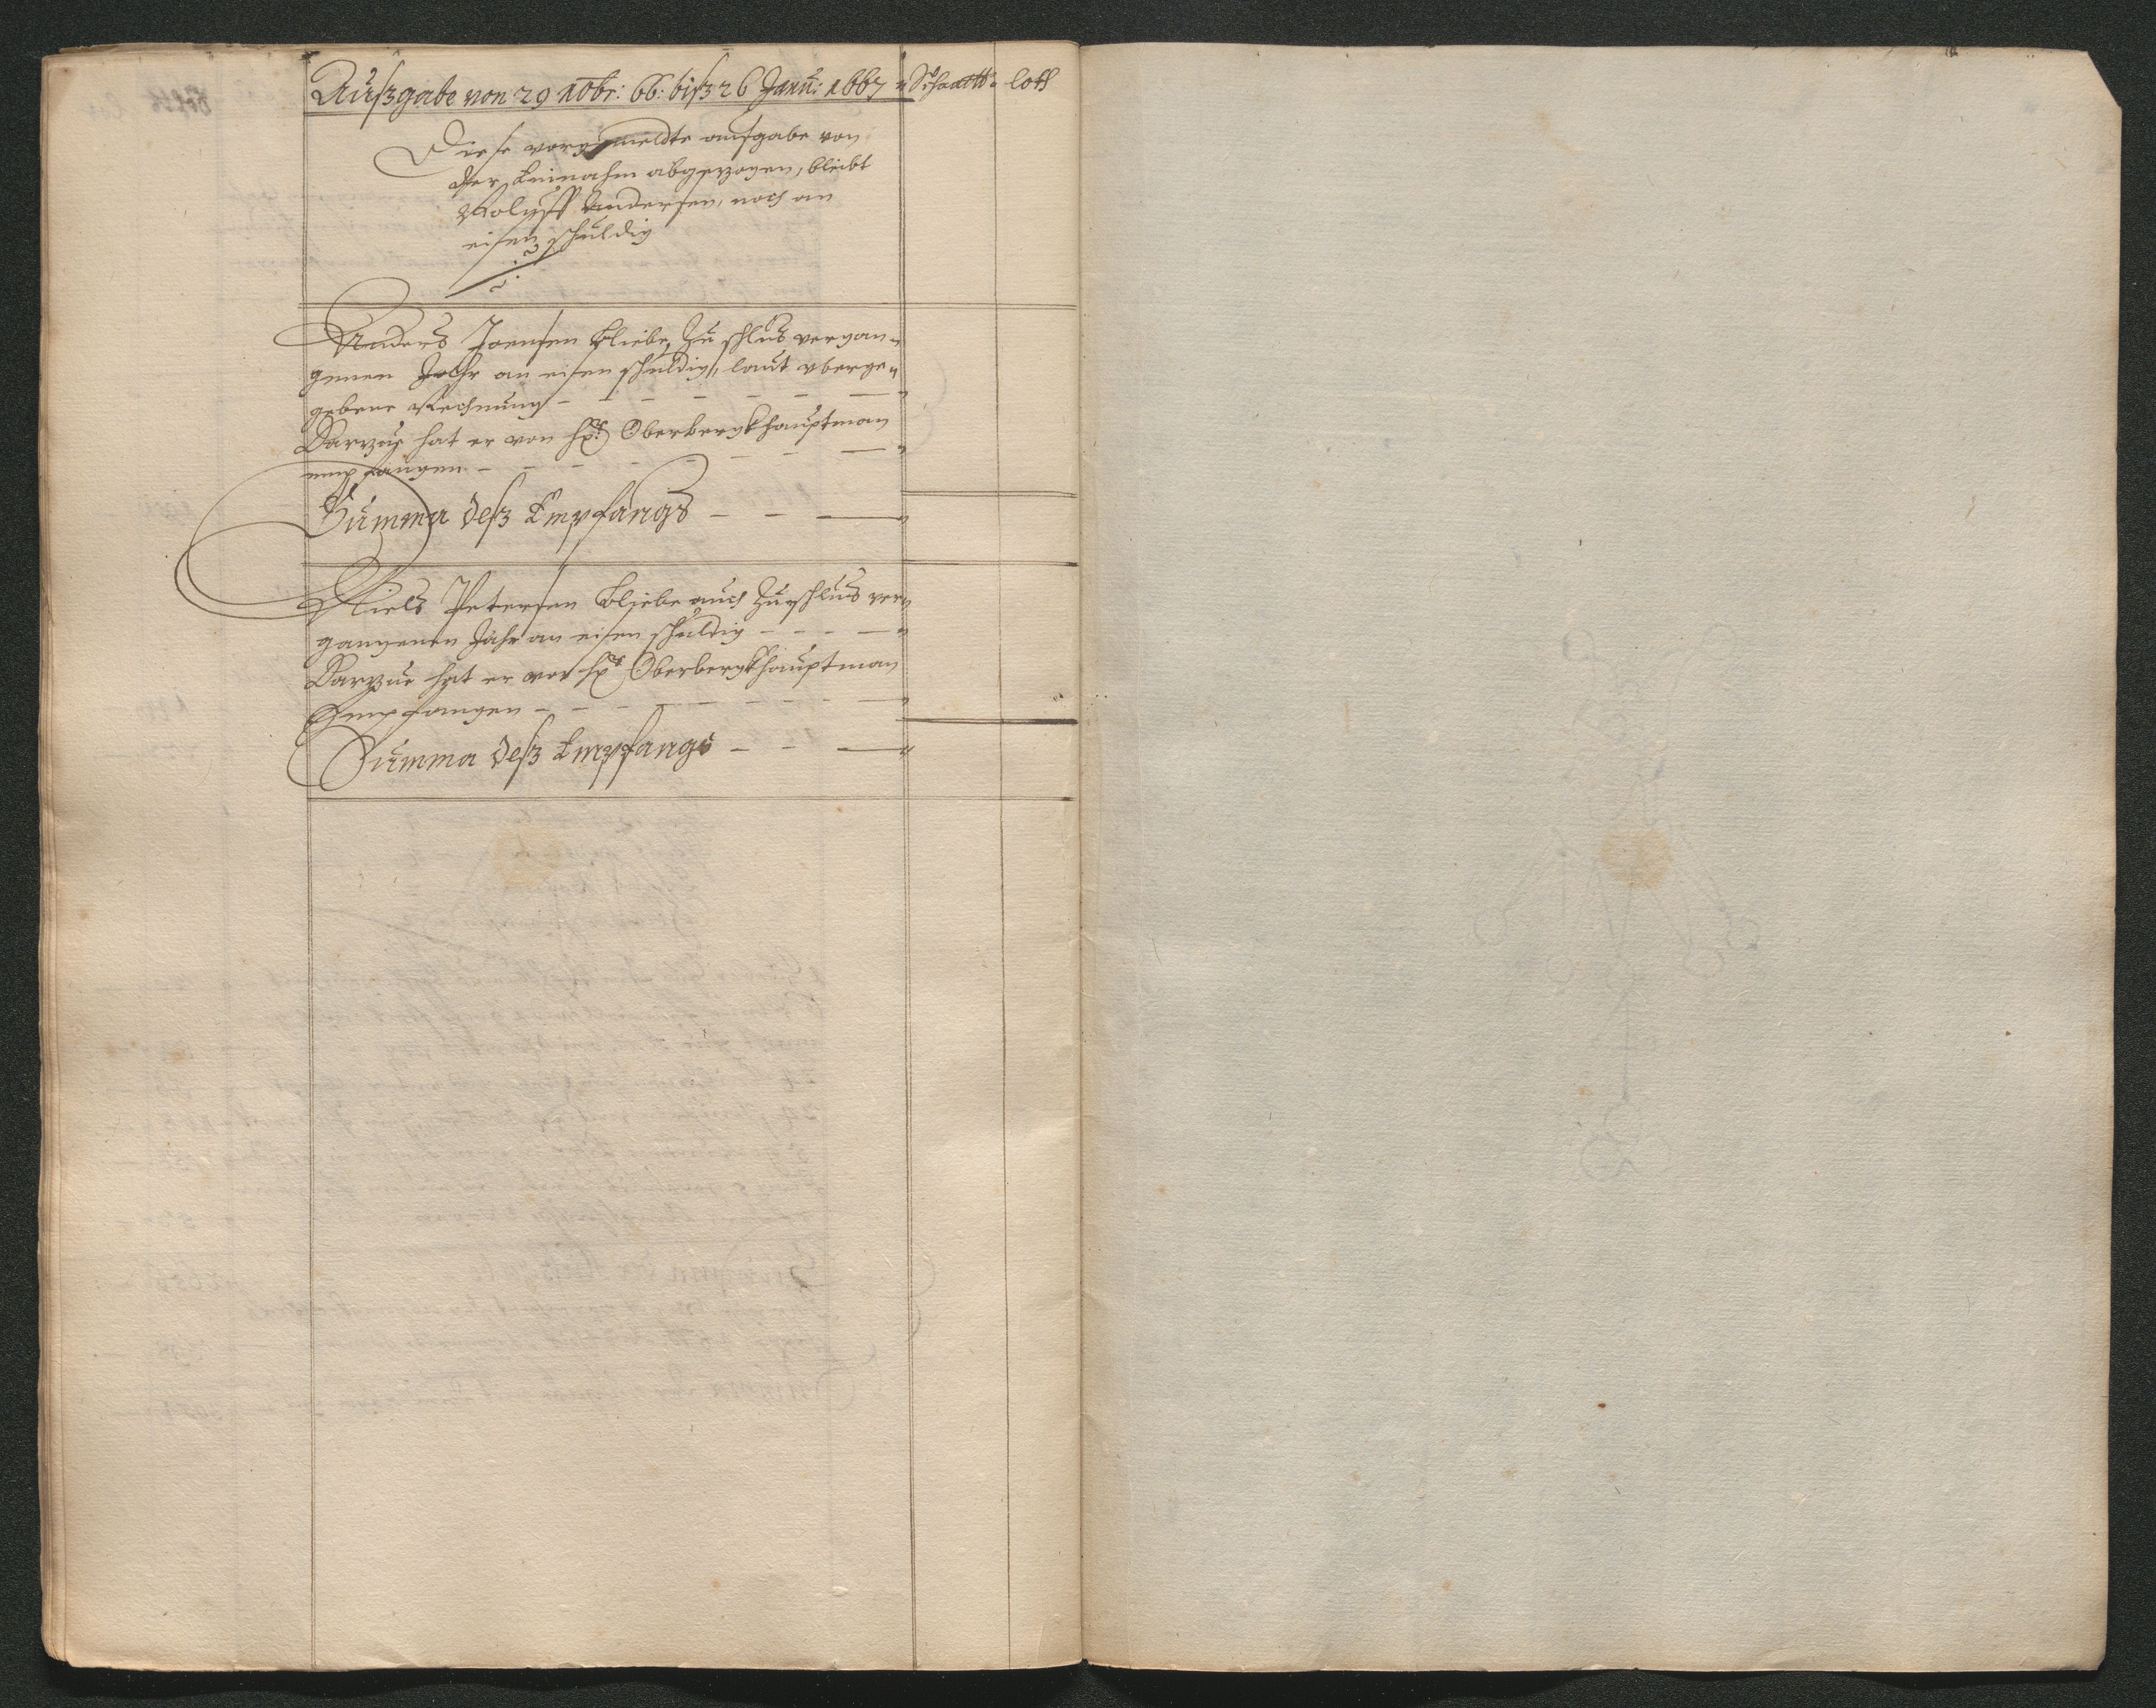 Außgabe von 29 Nobr: 66: biß 26 Janu: 1667
loth
Diese vorgemeldte ausgabe von
der Einnahm abgezogen, bleibt
Andersen, noch an
eisen schuldig
Anders Joensen bliebe, Zu schlus vergan-
genen Jahr an eisen schuldig, laut uberge-
gebene Rechnung
Darzue hat er von Hr: Oberbergkhauptman
empfangen
Summa deß Empfangs
Niels Petersen bliebe auch Zu schlus ver-
gangenen Jahr an eisen schuldig
Darzue hat er von Hr Oberbergkhauptman
Empfangen
Summa deß Empfangs